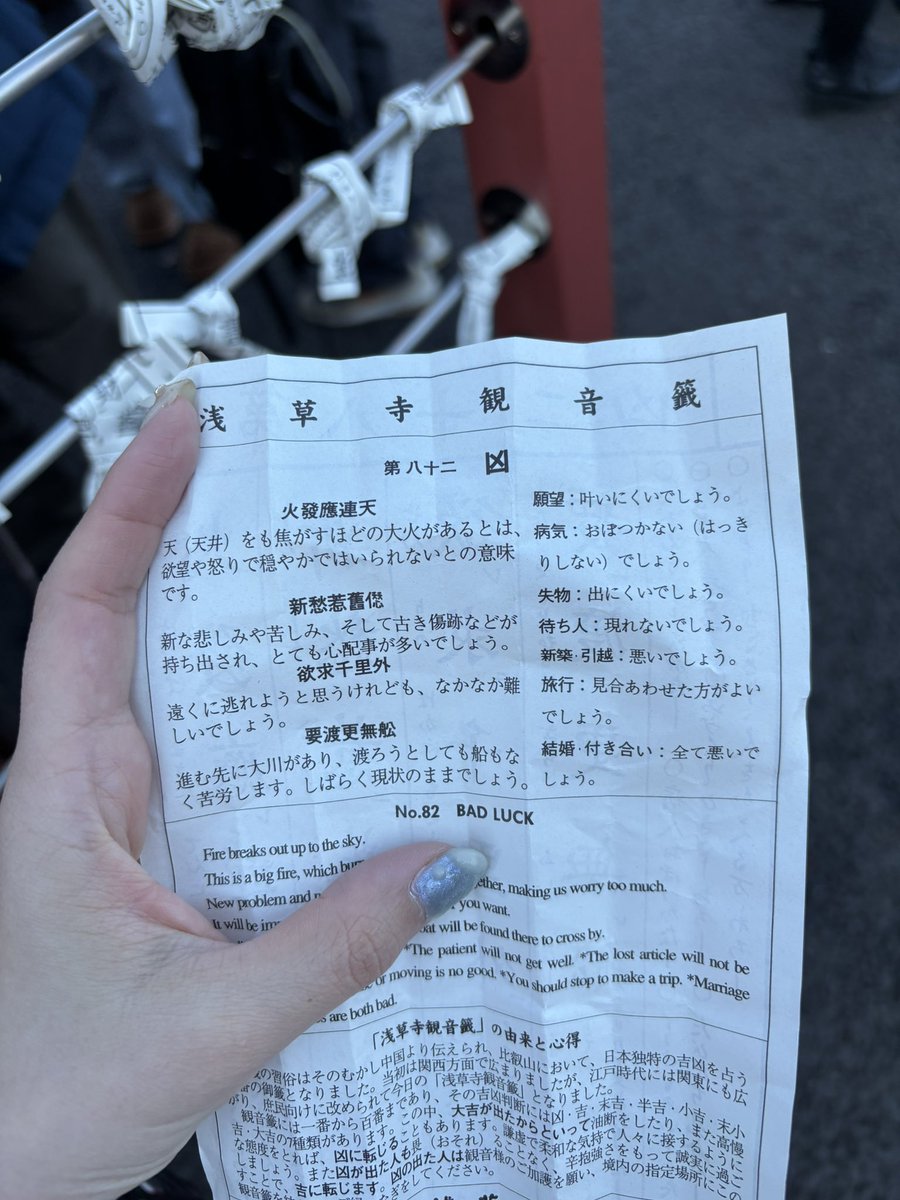 浅草寺観音籤
第八十二 凶
火發應連天
天（天井）をも焦がすほどの大火があるとは、
欲望や怒りで穏やかではいられないとの意味
です。
新愁惹舊愆
新な悲しみや苦しみ、そして古き傷跡などが
持ち出され、とても心配事が多いでしょう。
欲求千里外
遠くに逃れようと思うけれども、なかなか難
しいでしょう。
要渡更無舩
進む先に大川があり、渡ろうとしても船もな
く苦労します。しばらく現状のままでしょう。
願望：叶いにくいでしょう。
病気：おぼつかない（はっき
りしない）でしょう。
失物：出にくいでしょう。
待ち人：現れないでしょう。
新築・引越：悪いでしょう。
旅行：見合あわせた方がよい
でしょう。
結婚・付き合い：全て悪いで
しょう。
No.82 BAD LUCK
Fire breaks out up to the sky.
This is a big fire, which
New problem and making us worry too much.
It will be you want.
will be found there to cross by.
*The patient will not get well. *The lost article will not be
or moving is no good. *You should stop to make a trip. *Marriage
are both bad.
「浅草寺観音籤」の由来と心得
の習俗はそのむかし中国より伝えられ、比叡山において、日本独特の吉凶を占う
の御籤となりました。当初は関西方面で広まりましたが、江戸時代には関東にも広
がり、庶民向けに改められて今日の「浅草寺観音籤」となりました。
観音籤には一番から百番まであり、その吉凶判断には凶・吉・末吉・半吉・小吉・末小
吉・大吉の7種類があります。この中、大吉が出たからといって油断をしたり、また高慢
な態度をとれば、凶に転じることもあります。謙虚で柔和な気持で人々に接するように
しましょう。また凶が出た人も畏（おそれ）ることなく、辛抱強さをもって誠実に過ご
すことで、吉に転じます。凶の出た人は観音様のご加護を願い、境内の指定場所にこの
観音籤を